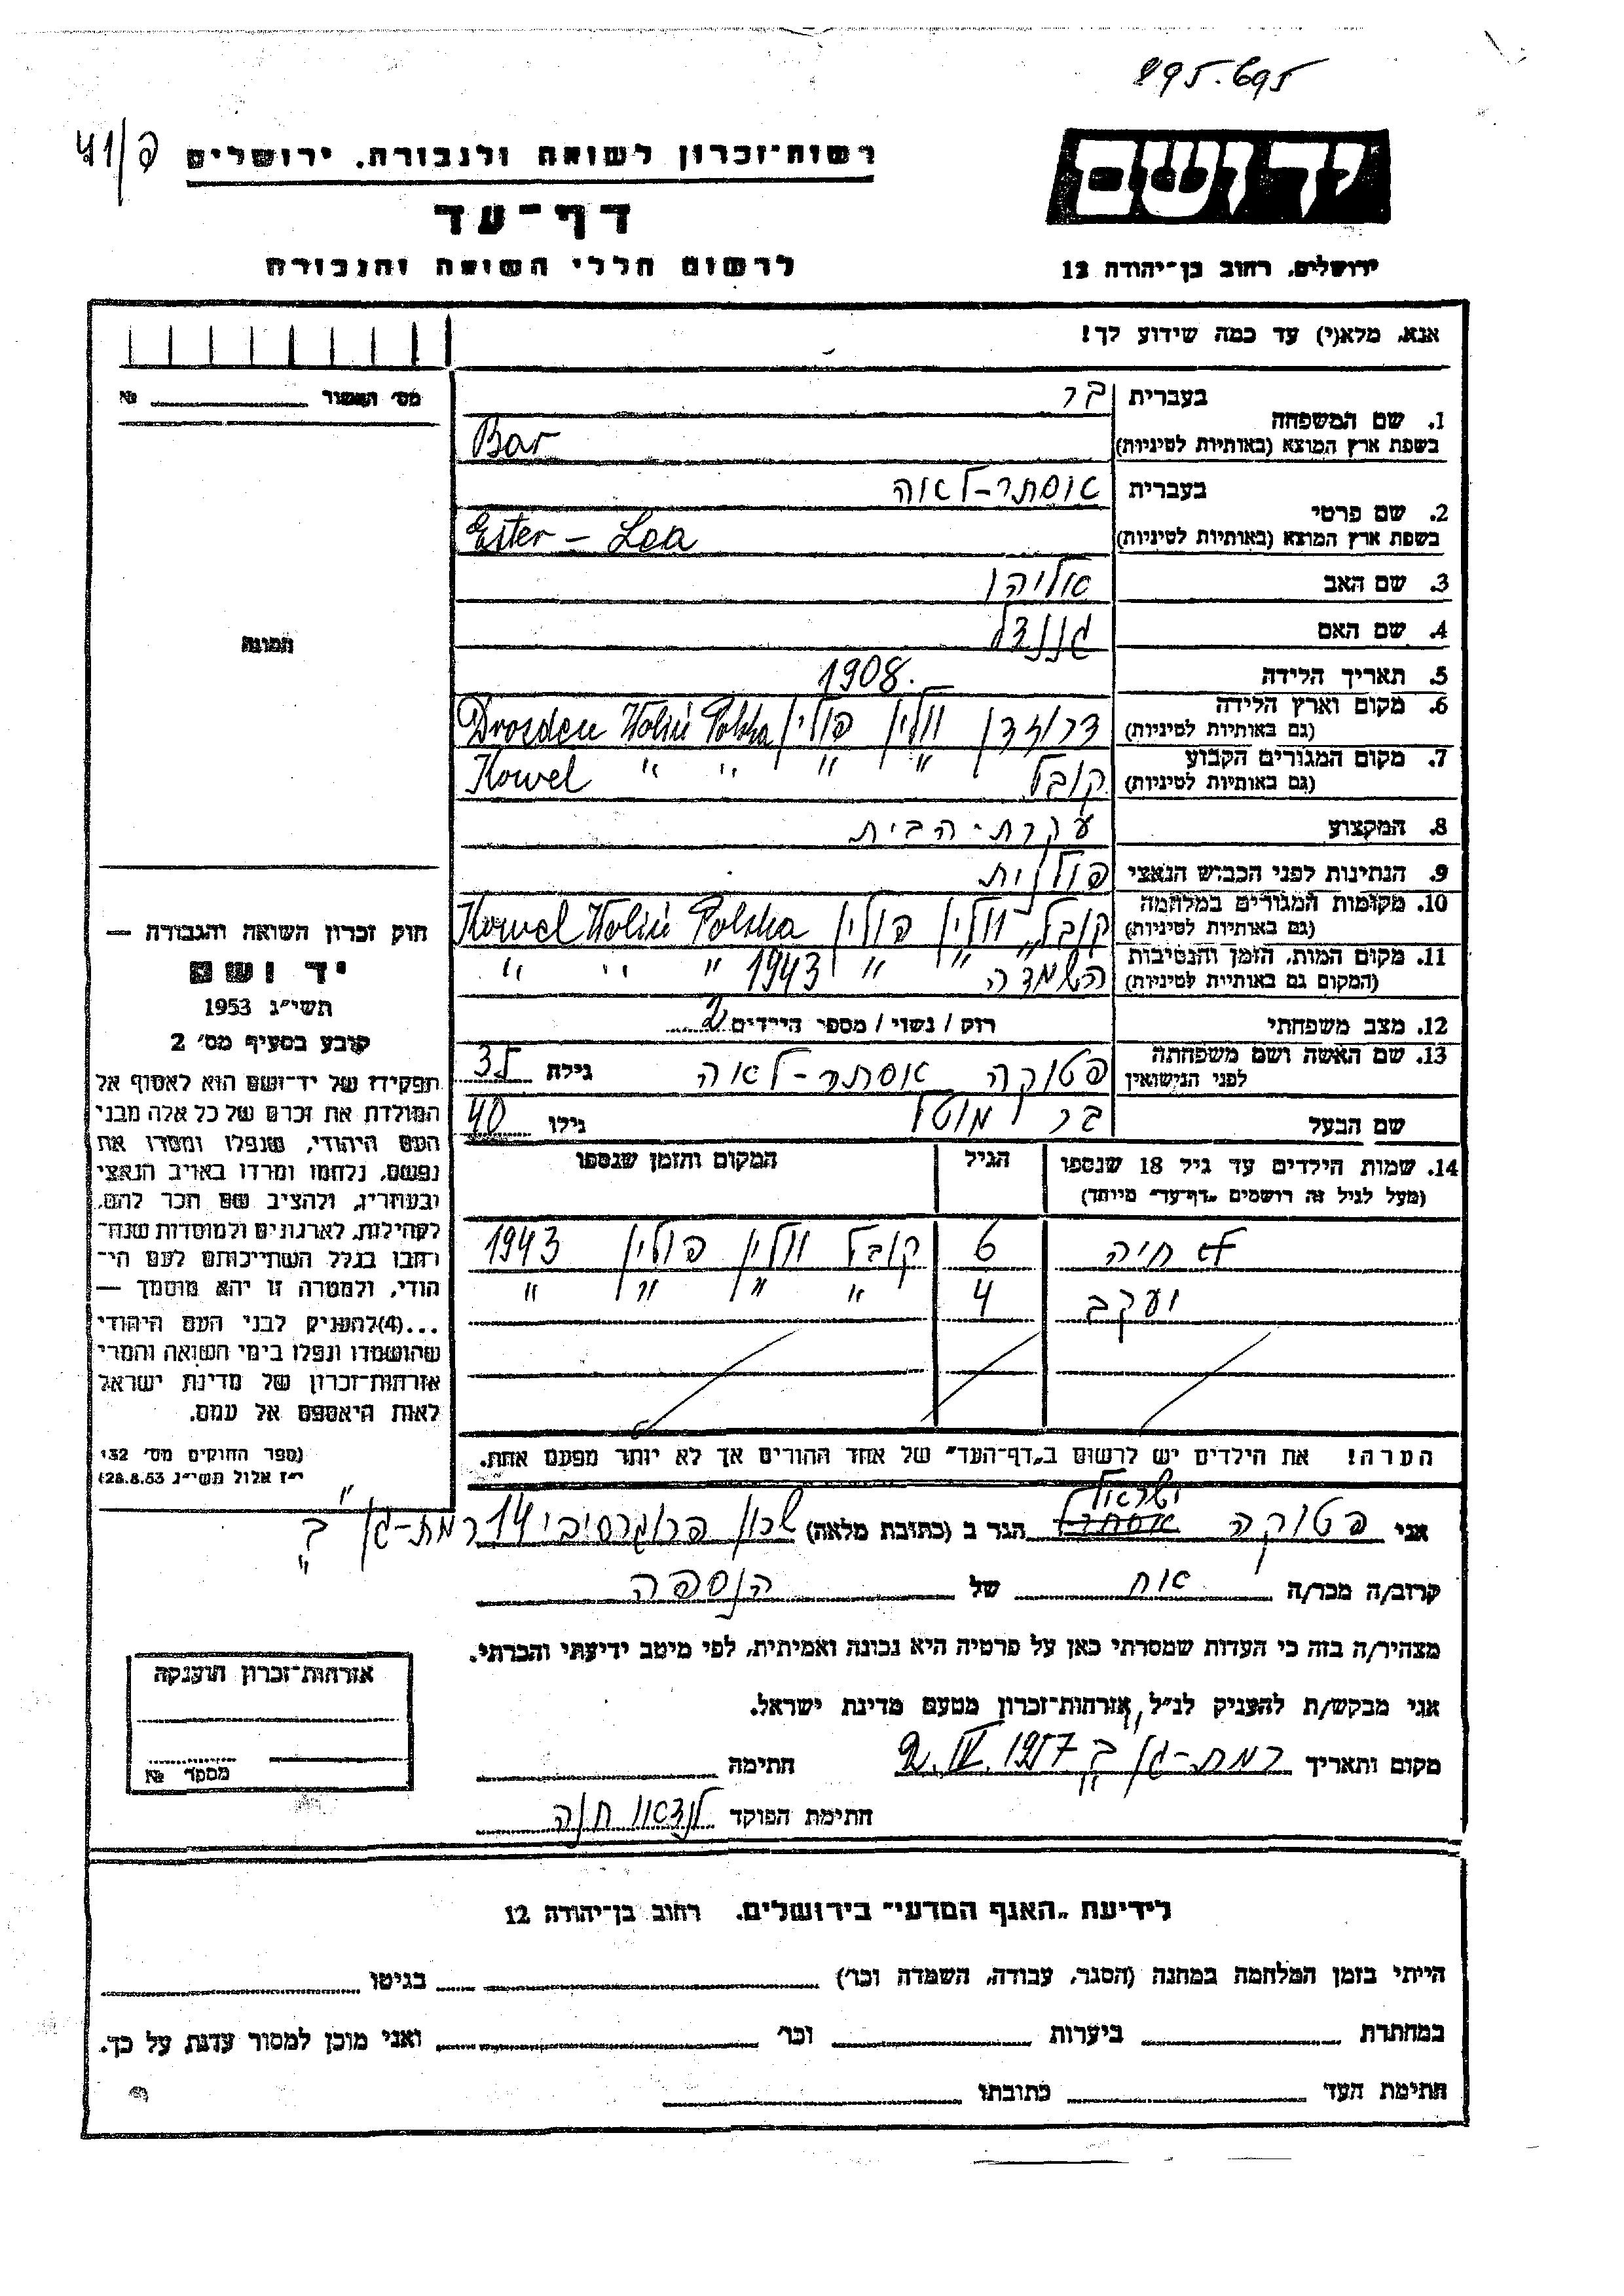 895.695
רשות-זכרון לשואה ולגבורה. ירושלים
41/פ
דף-עד
לרשום חללי השואה והגבורה
יד ושם
ירושלים, רחוב בן-יהודה 12
אנא, מלא(י) עד כמה שידוע לך!
מס' האשור № 
1. שם המשפחה
בעברית בר
בשפת ארץ המוצא (באותיות לטיניות) Bar
2. שם פרטי
בעברית אוסתר-לאה
בשפת ארץ המוצא (באותיות לטיניות) Ester - Lea
3. שם האב אליהו
4. שם האם
5. תאריך הלידה 1908.
6. מקום וארץ הלידה
(גם באותיות לטיניות) דרוזדן וולין פולין Drozden Wolin Polska
7. מקום המגורים הקבוע
(גם באותיות לטיניות) קובל " " " " Kowel
8. המקצוע עקרת-הבית
9. הנתינות לפני הכבוש הנאצי פולנית
10. מקומות המגורים במלחמה
(גם באותיות לטיניות) קובל וולין פולין Kowel Wolin Polska
11. מקום המות, הזמן והנסיבות
(המקום גם באותיות לטיניות) השמדה " " 1943 " " "
12. מצב משפחתי רוק / נשוי / מספר הילדים 2
13. שם האשה ושם משפחתה
לפני הנישואין פטוקה אסתר-לאה גילה 35
שם הבעל בר מוטל גילו 40
14. שמות הילדים עד גיל 18 שנספו
(מעל לגיל זה רושמים "דף-עד" מיוחד)
הגיל
המקום והזמן שנספו
חיה 6 קובל וולין פולין 1943
יעקב 4 " " " "
הערה! את הילדים יש לרשום ב"דף-העד" של אחד ההורים אך לא יותר מפעם אחת.
תמונה
חוק זכרון השואה והגבורה —
יד ושם
תשי"ג 1953
קובע בסעיף מס' 2
תפקידו של יד-ושם הוא לאסוף אל
המולדת את זכרם של כל אלה מבני
העם היהודי, שנפלו ומסרו את
נפשם, נלחמו ומרדו באויב הנאצי
ובעוזריו, ולהציב שם וזכר להם,
לקהילות, לארגונים ולמוסדות שנח-
רבו בגלל השתייכותם לעם הי-
הודי, ולמטרה זו יהא מוסמך —
...(4) להעניק לבני העם היהודי
שהושמדו ונפלו בימי השואה והמרי
אזרחות-זכרון של מדינת ישראל
לאות היאספם אל עמם.
(ספר החוקים מס' 132
י"ז אלול תשי"ג 28.8.53)
ישראל
אני פטוקה הגר ב (כתובת מלאה) שכון פרוגרסיבי 14 רמת-גן ב'
קרוב/ה מכר/ה אח של הנספה
מצהיר/ה בזה כי העדות שמסרתי כאן על פרטיה היא נכונה ואמיתית, לפי מיטב ידיעתי והכרתי.
אני מבקש/ת להעניק לנ"ל אזרחות-זכרון מטעם מדינת ישראל.
מקום ותאריך רמת-גן ב' 2.IV.1957 חתימה
חתימת הפוקד לנדאו חנה
אזרחות-זכרון הוענקה
מספר №
לידיעת "האגף המדעי" בירושלים. רחוב בן-יהודה 12
הייתי בזמן המלחמה במחנה (הסגר, עבודה, השמדה וכו') בגיטו
במחתרת ביערות וכו' ואני מוכן למסור עדות על כך.
חתימת העד כתובתו